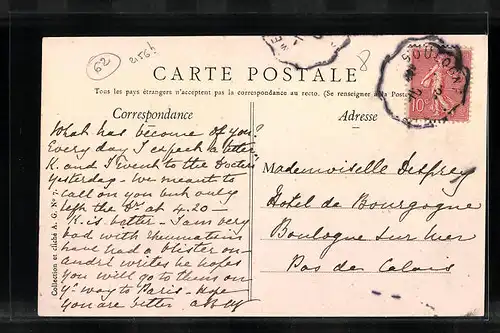 62
CARTE POSTALE
Tous les pays étrangers n'acceptent pas la correspondance au recto. (Se renseigner à la Poste
Correspondance
Adresse
What has become of you?
Every day I expect a letter
K. and I went to the Doctors
yesterday - We meant to
call on you but only
left the Dr at 4.20 -
K. is better - I am very
bad with rheumatism
have had a blister on
André writes he hopes
you will go to them on
yr way to Paris - Hope
you are better
Mademoiselle Desprey
Hotel de Bourgogne
Boulogne sur Mer
Pas de Calais
Collection et cliché A. G. N° 7.
10